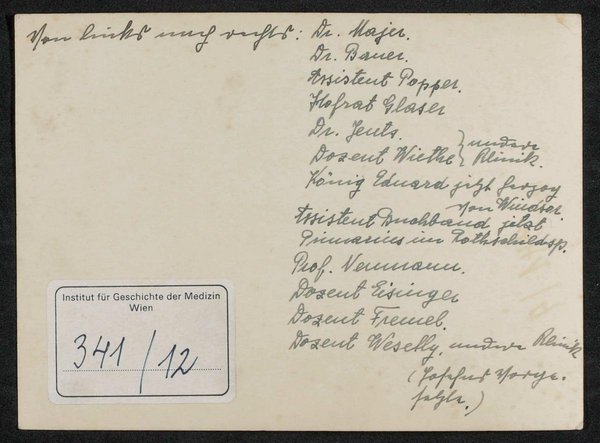 Von links nach rechts: Dr. Majer.
Dr. Bauer.
Assistent Popper.
Hofrat Glaser
Dr. Jents.
Dozent Wiethe } andere Klinik.
König Eduard jetzt Herzog
von Windsor.
Assistent Buchband jetzt
Primarius im Rothschildsp.
Prof. Neumann.
Dozent Eisinger
Dozent Fremel.
Dozent Wesselky, andere Klinik
(Josefus Vorge-
setzte.)
Institut für Geschichte der Medizin
Wien
341/12